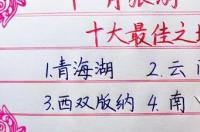 十大最佳之
1.青海湖 2.云
3.西双版纳 4.南